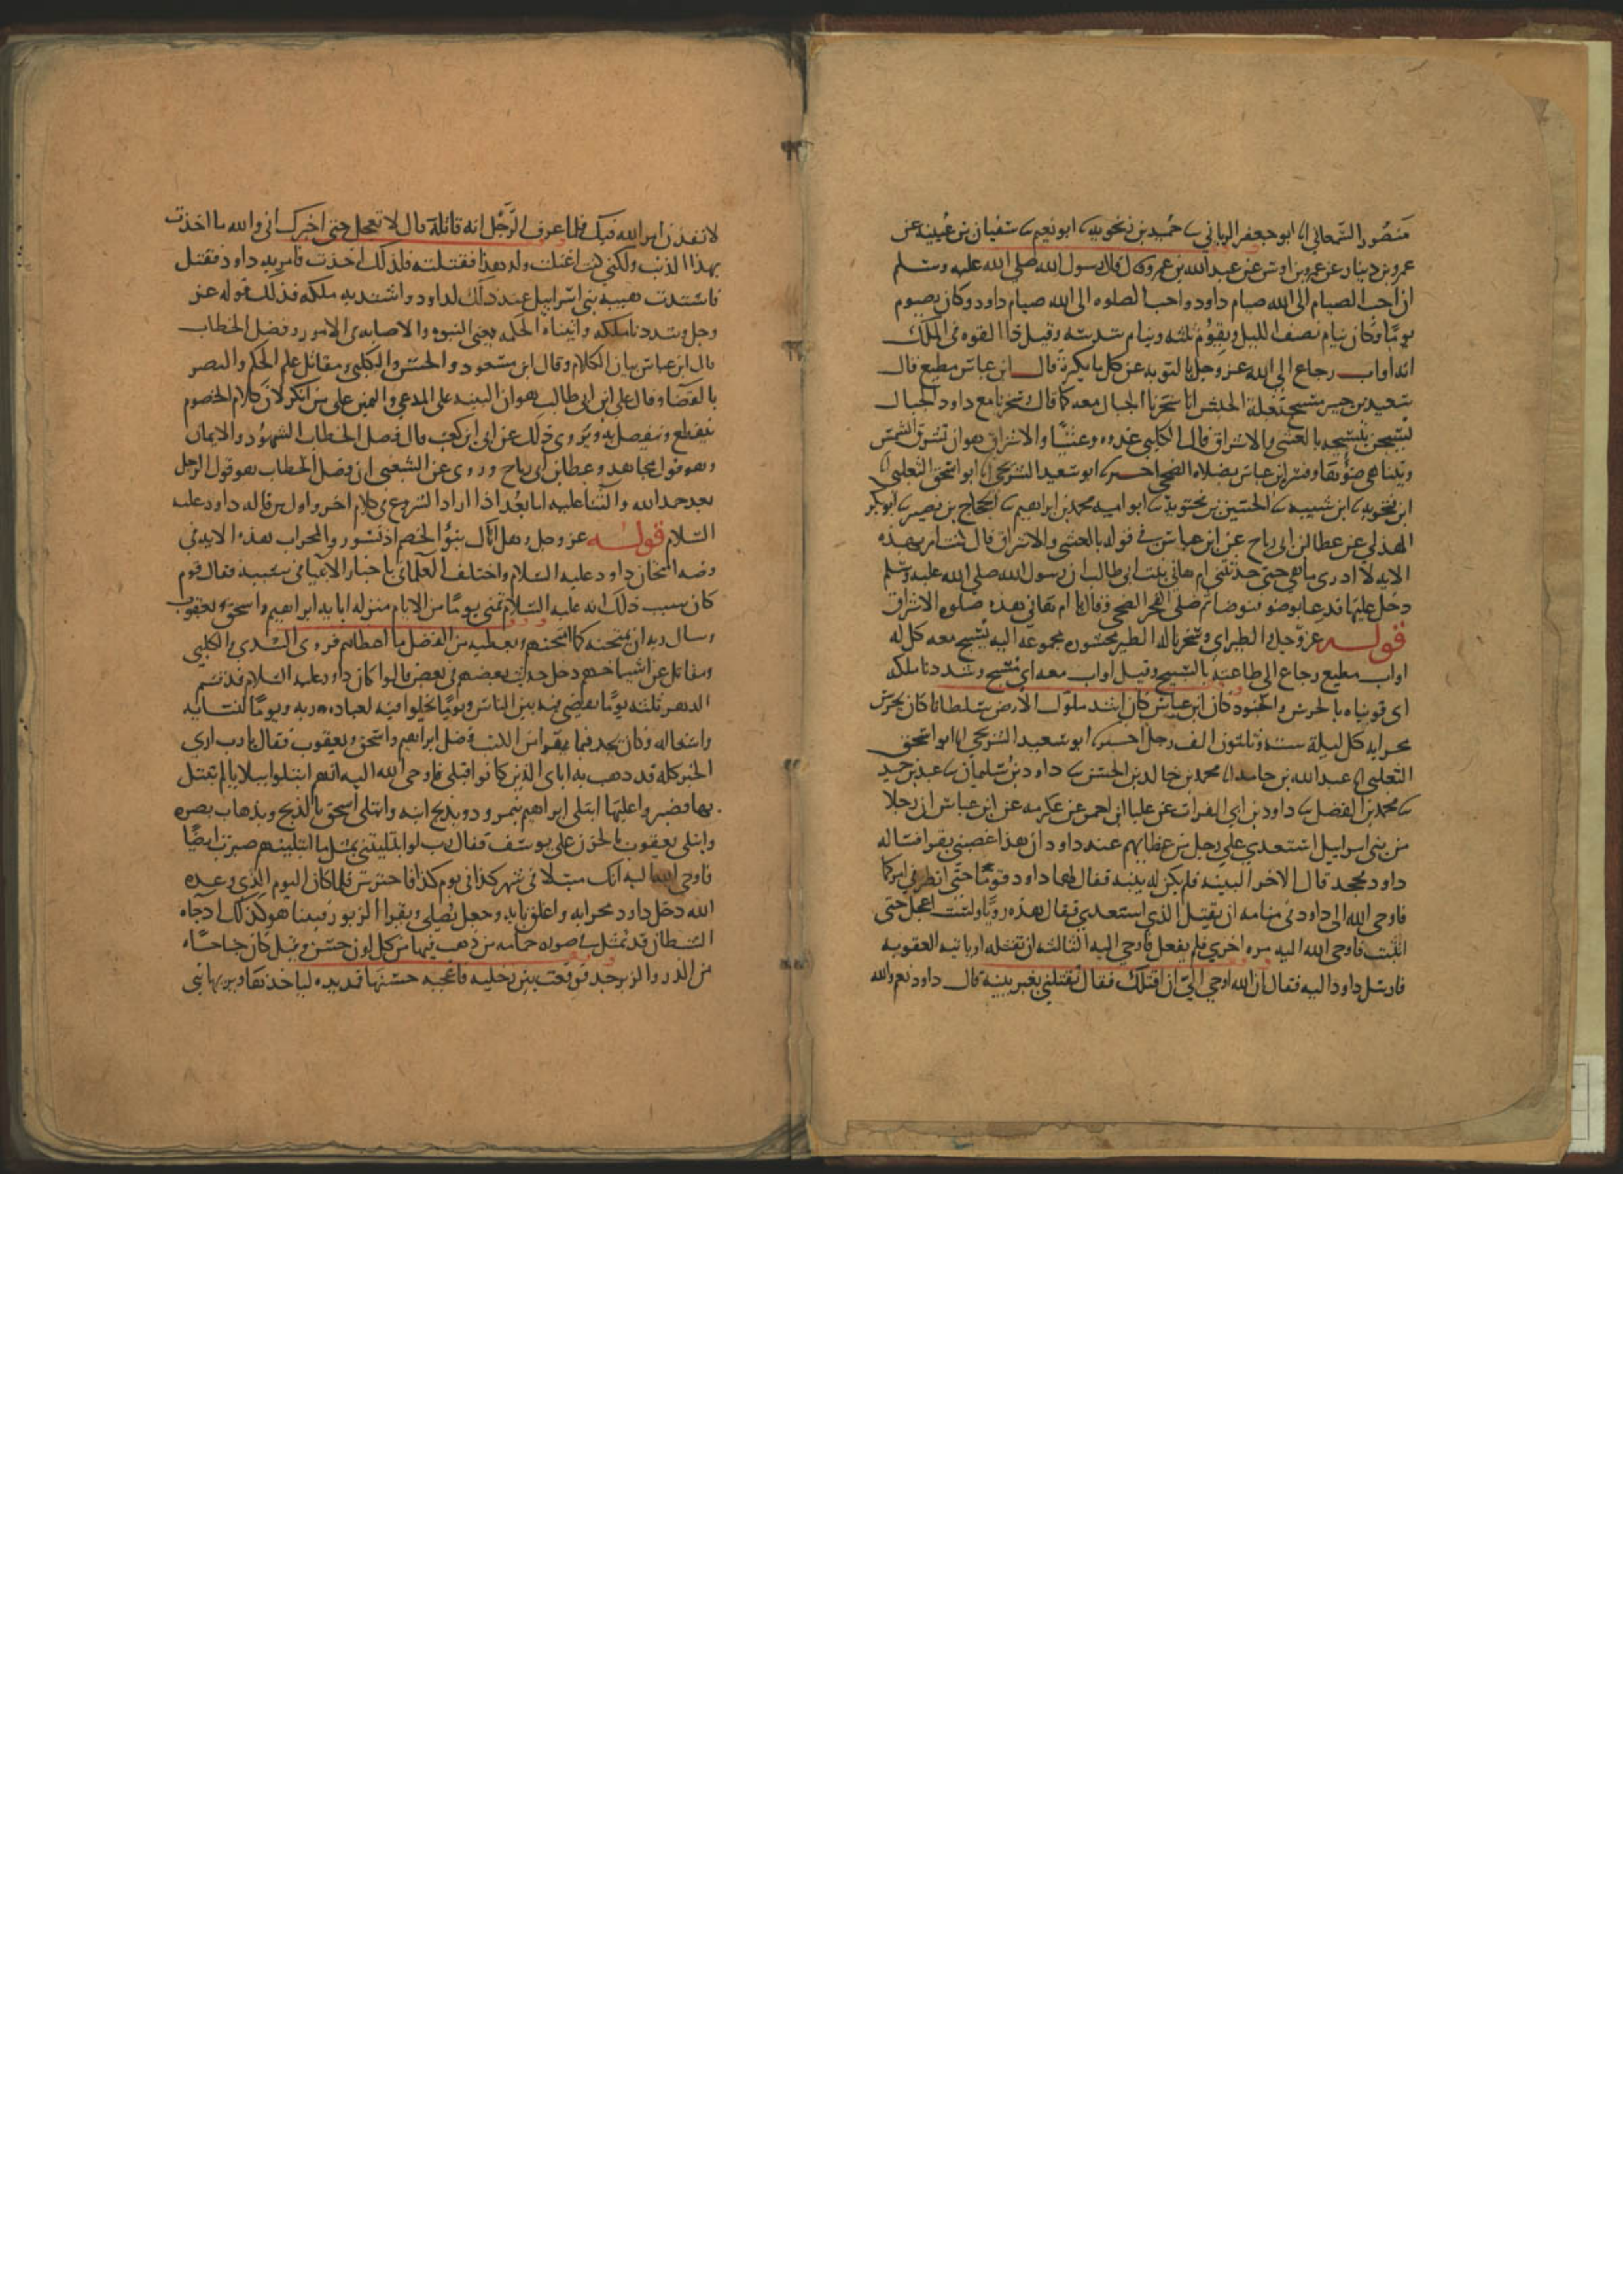 منصور السمعاني انا ابو جعفر الرياني ثنا حميد بن زنجويه ثنا ابو نعيم ثنا سفيان بن عيينه عن
عمرو بن دينار عن عمرو بن اوس عن عبد الله بن عمرو قال قال رسول الله صلى الله عليه وسلم
ان احب الصيام الى الله صيام داود واحب الصلوه الى الله صيام داود وكان يصوم
يوما وكان ينام نصف الليل ويقوم ثلثه وينام سدسه وقيل ذا القوه في الملك
انه اواب رجاع الى الله عز وجل بالتوبه عن كل ما يكره قال ابن عباس مطيع قال
سعيد بن جبير مسبح بلغة الحبش انا سخرنا الجبال معه كما قال وسخرنا مع داود الجبال
يسبحن بتسبيحه بالعشي والاشراق قال الكلبي غدوه وعشيا والاشراق هو ان تشرق الشمس
ويتناهى ضوءها وفسر ابن عباس بصلاه الضحى اخبرنا ابو سعيد الشريحي انا ابو اسحق الثعلبي انا
ابن فنجويه ثنا ابن شيبه ثنا الحسين بن بختويه ثنا ابو اميه محمد بن ابراهيم ثنا الحجاج بن نصير ثنا ابو بكر
الهذلي عن عطا بن ابي رباح عن ابن عباس في قوله بالعشي والاشراق قال كنت امر بهذه
الايه لا ادري ما هي حتى حدثتني ام هاني بنت ابي طالب ان رسول الله صلى الله عليه وسلم
دخل عليها فدعا بوضو فتوضا ثم صلى الضحى فقال يا ام هاني هذه صلوه الاشراق
قوله عز وجل والطير اي وسخرنا له الطير محشوره مجموعه اليه تسبح معه كل له
اواب مطيع رجاع الى طاعته بالتسبيح وقيل اواب معه اي مسبح وشددنا ملكه
اي قويناه بالحرس والجنود كان ابن عباس كان اشد ملوك الارض سلطانا كان يحرس
محرابه كل ليلة سته وثلثون الف رجل اخبرنا ابو سعيد الشريحي انا ابو اسحق
الثعلبي انا عبد الله بن حامد انا محمد بن خالد بن الحسن ثنا داود بن سليمان ثنا عبد بن حميد
ثنا محمد بن الفضل ثنا داود بن ابي الفرات عن عليا ابن احمر عن عكرمه عن ابن عباس ان رجلا
من بني اسرايل استعدي على رجل من عظمايهم عند داود ان هذا غصبني بقرا فساله
داود فجحد قال الاخر البينه فلم يكن له بينه فقال لهما داود قوما حتى انظر في امركما
فاوحى الله الى داود في منامه ان يقتل الذي استعدي فقال هذه رويا ولست اعجل حتى
اتثبت فاوحى الله اليه مره اخري فلم يفعل فاوحى اليه الثالثه ان تقتله او ياتيه العقوبه
فارسل داود اليه فقال ان الله اوحى الي ان اقتلك فقال تقتلني بغير بينه قال داود نعم والله
لانفذن امر الله فيك فلما عرف الرجل انه قاتله قال لا تعجل حتى اخبرك اني والله ما اخذت
بهذا الذنب ولكني كنت اغتلت ولد هذا فقتلته فلذلك اخذت فامر به داود فقتل
فاشتدت هيبه بني اسرايل عند ذلك لداود واشتد به ملكه فذلك قوله عز
وجل وشددنا ملكه واتيناه الحكمه يعني النبوه والاصابه في الامور وفصل الخطاب
قال ابن عباس بيان الكلام وقال ابن مسعود والحسن والكلبي ومقاتل علم الحكم والبصر
بالقضا وقال علي ابن ابي طالب هو ان البينه على المدعي واليمين على من انكر لان كلام الخصوم
ينقطع وينفصل به ويروى ذلك عن ابي ابن كعب قال فصل الخطاب الشهود والايمان
وهو قول مجاهد وعطا بن ابي رباح وروى عن الشعبي ان فصل الخطاب هو قول الرجل
بعد حمد الله والثنا عليه اما بعد اذا اراد الشروع في كلام اخر واول من قاله داود عليه
السلام قوله عز وجل وهل اتاك نبؤ الخصم اذ تسوروا المحراب هذه الايه في
قصه امتحان داود عليه السلام واختلف العلما باخبار الانبيا في سببه فقال قوم
كان سبب ذلك انه عليه السلام تمنى يوما من الايام منزله ابايه ابراهيم واسحق ويعقوب
وسال ربه ان يمتحنه كما امتحنهم ويعطيه من الفضل ما اعطاهم فروى السدي والكلبي
ومقاتل عن اشياخهم دخل حديث بعضهم في بعض قالوا كان داود عليه السلام قد قسم
الدهر ثلثه يوما يقضي فيه بين الناس ويوما يخلوا فيه لعباده ربه ويوما لنسايه
واشغاله وكان يجد فيما يقرا من الكتب فضل ابراهيم واسحق ويعقوب فقال يا رب ارى
الخير كله قد ذهب به اباي الذين كانوا قبلي فاوحى الله اليه انهم ابتلوا ببلايا لم تبتل
بها فصبروا عليها ابتلى ابراهيم بنمرود وبذبح ابنه وابتلى اسحق بالذبح وبذهاب بصره
وابتلى يعقوب بالحزن على يوسف فقال رب لو ابتليتني بمثل ما ابتليتهم صبرت ايضا
فاوحى الله اليه انك مبتلا في شهر كذا في يوم كذا فاحترس فلما كان اليوم الذي وعده
الله دخل داود محرابه واغلق بابه وجعل يصلي ويقرا الزبور فبينا هو كذلك اذ جاه
الشيطان قد تمثل في صوره حمامه من ذهب فيها من كل لون حسن وقيل كان جناحاه
من الدر والزبرجد فوقعت بين رجليه فاعجبه حسنها فمد يده لياخذها ويريها بني